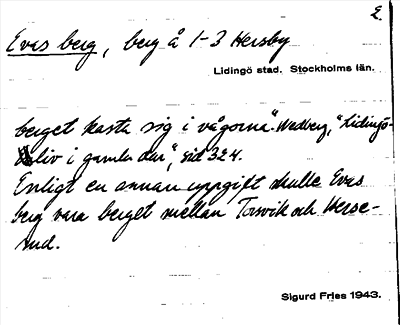 2.
Evas berg, berg å 1-3 Hersby
Lidingö stad. Stockholms län.
berget kasta sig i vågorna". Wedberg, "Lidingö-
liv i gamla dar", sid 324.
Enligt en annan uppgift skulle Evas
berg vara berget mellan Torsvik och Herse-
rud.
Sigurd Fries 1943.